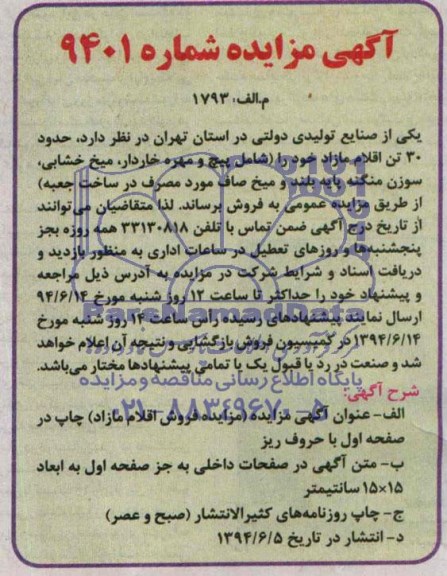 آگهی مزایده شماره ۹۴۰۱
م.الف: ۱۷۹۳
یکی از صنایع تولیدی دولتی در استان تهران در نظر دارد، حدود
۳۰ تن اقلام مازاد خود را (شامل پیچ و مهره خاردار، میخ خشابی،
سوزن منگنه پایه بلند و میخ صاف مورد مصرف در ساخت جعبه)
از طریق مزایده عمومی به فروش برساند. لذا متقاضیان می‌توانند
از تاریخ درج آگهی ضمن تماس با تلفن ۳۳۱۳۰۸۱۸ همه روزه بجز
پنجشنبه‌ها و روزهای تعطیل در ساعات اداری به منظور بازدید و
دریافت اسناد و شرایط شرکت در مزایده به آدرس ذیل مراجعه
و پیشنهاد خود را حداکثر تا ساعت ۱۲ روز شنبه مورخ ۹۴/۶/۱۴
ارسال نمایند پیشنهادهای رسیده راس ساعت ۱۴ روز شنبه مورخ
۱۳۹۴/۶/۱۴ در کمیسیون فروش بازگشایی و نتیجه آن اعلام خواهد
شد و صنعت در رد یا قبول یک یا تمامی پیشنهادها مختار می‌باشد.
پایگاه اطلاع رسانی مناقصه و مزایده
شرح آگهی:
۰۲۱-۸۸۳۴۹۶۷۰-۵
الف- عنوان آگهی مزایده (مزایده فروش اقلام مازاد) چاپ در
صفحه اول با حروف ریز
ب- متن آگهی در صفحات داخلی به جز صفحه اول به ابعاد
۱۵×۱۵ سانتیمتر
ج- چاپ روزنامه‌های کثیرالانتشار (صبح و عصر)
د- انتشار در تاریخ ۱۳۹۴/۶/۵